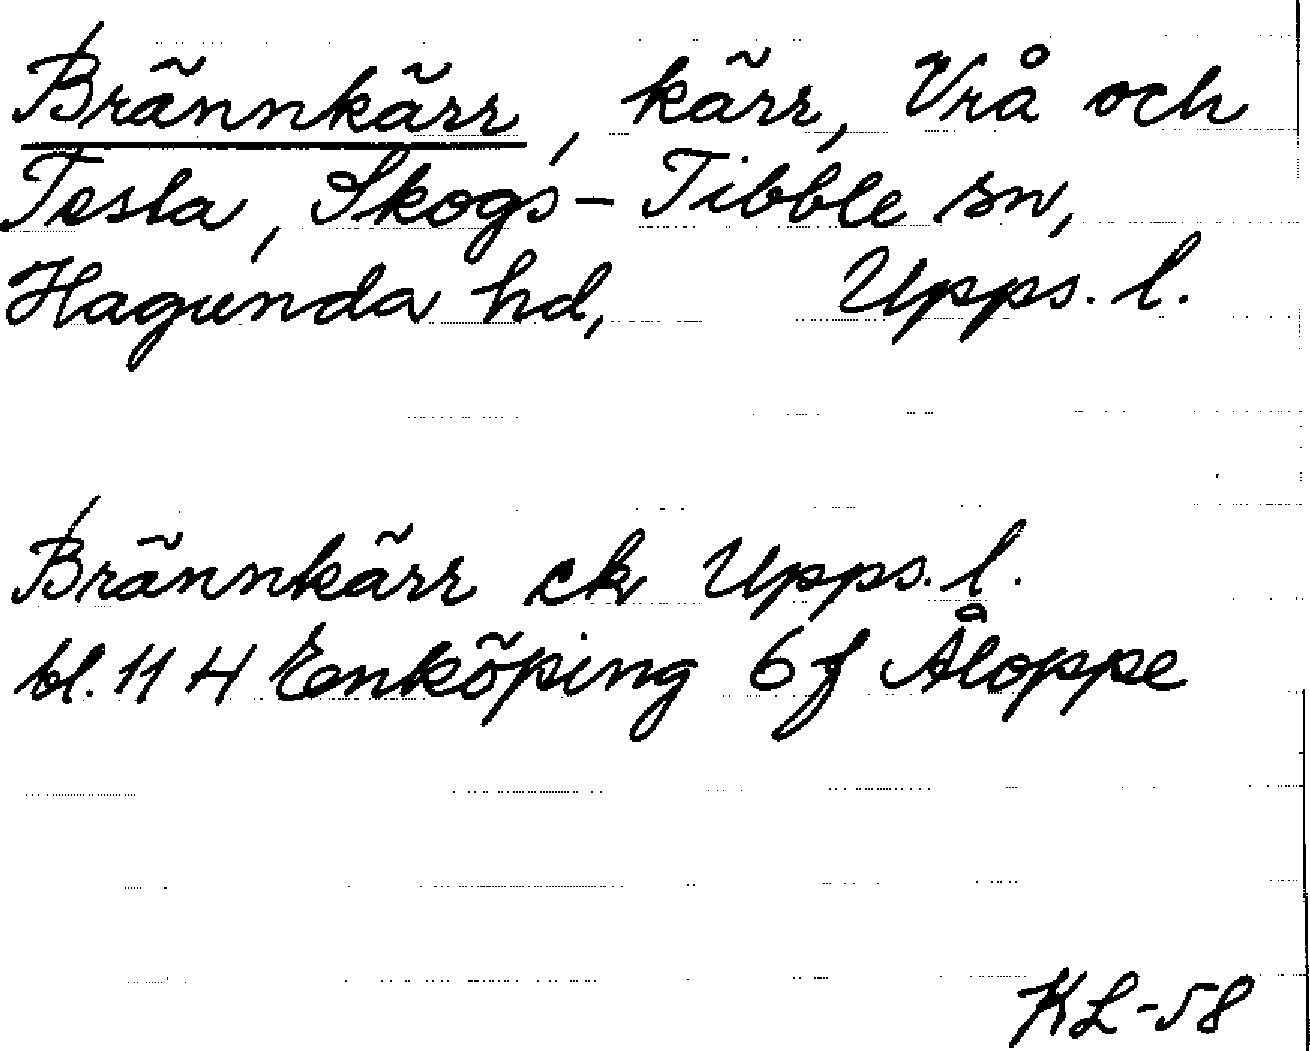 Brännkärr, kärr, Vrå och
Tesla, Skogs-Tibble sn,
Hagunda hd, Upps. l.
Brännkärr ek Upps. l.
bl. 11 H Enköping 6 f Åloppe
KL-58